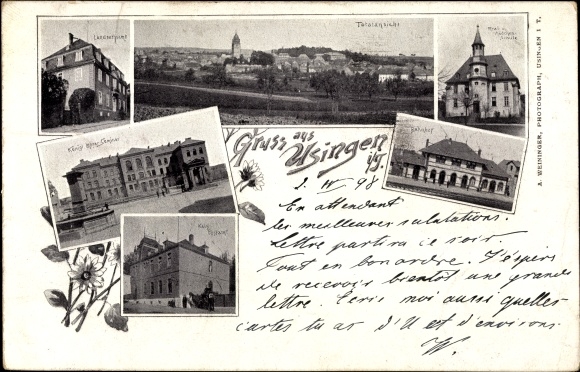 Landratsamt
Totalansicht
Real u.
Schule
Bahnhof
König. Lehrer-Seminar
Kais. Postamt
Gruss aus
Usingen
i/T.
A. WEININGER, PHOTOGRAPH, USINGEN I T.
2. IV 98
En attendant
les meilleures salutations.
Lettre partira ce soir.
Tout en bon ordre. J'espère
de recevoir bientôt une grande
lettre. Ecris moi aussi quelles
cartes tu as d'U et d'environs.
W.